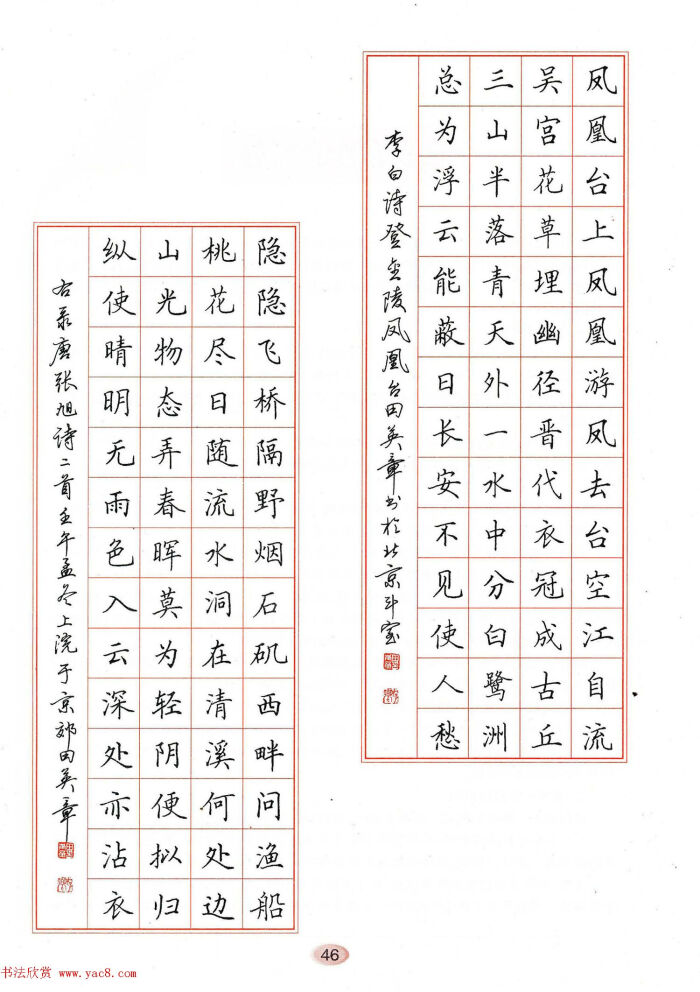 凤凰台上凤凰游凤去台空江自流
吴宫花草埋幽径晋代衣冠成古丘
三山半落青天外一水中分白鹭洲
总为浮云能蔽日长安不见使人愁
李白诗登金陵凤凰台田英章书于北京斗室
隐隐飞桥隔野烟石矶西畔问渔船
桃花尽日随流水洞在清溪何处边
山光物态弄春晖莫为轻阴便拟归
纵使晴明无雨色入云深处亦沾衣
右录唐张旭诗二首壬午孟冬上浣于京郊田英章
46
书法欣赏 www.yac8.com